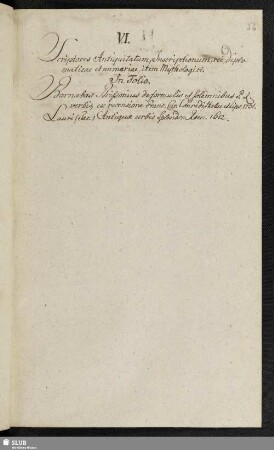 VI.
Scriptores Antiquitatum, Inscriptionum, rei diplo-
maticae et nummariae, item Mythologici.
In Folio.
Barnabas Brissonius de formulis et solemnibus P. R.
verbis, ex recensione Franc. Car. Conradi
Lauri Jac. Antiquae urbis splendor. Rom. 1612.
SLUB